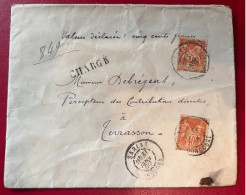 Valeur déclarée : cinq cents francs
849
CHARGÉ
Monsieur Debregeas
Percepteur des Contributions directes
à
Terrasson.